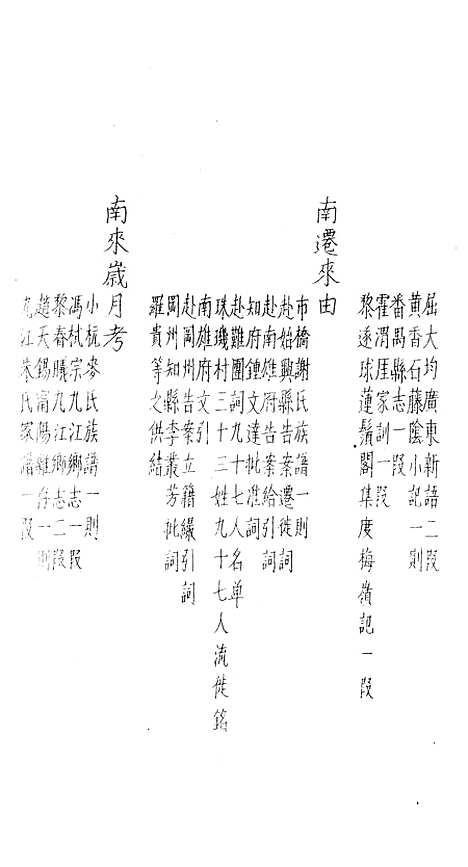 屈大均廣東新語二段
黃香石藤陰小記一則
番禺縣志一段
霍渭厓家訓一段
黎遂球蓮鬚閣集度梅嶺記一段
南遷來由
市橋謝氏族譜一則
赴始興縣告案遷徙詞
赴南雄府告案給引詞
知府鍾文達批准詞
赴難團詞九十七人名单
珠璣村三十三姓九十七人流徙銘
南雄府文引
赴岡州告案立籍繳引詞
岡州知縣李叢芳批詞
羅貴等之供結
南來歲月考
小杬麥氏族譜一則
馮栻宗九江鄉志一段
黎春曦九江鄉志二段
趙天錫甯陽雜存一則
九江朱氏家譜一段